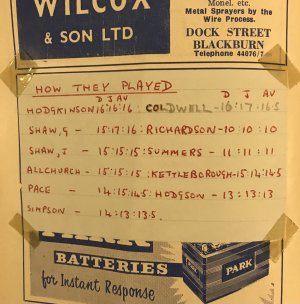 WILCOX
& SON LTD.
Monel. etc.
Metal Sprayers by the
Wire Process.
DOCK STREET
BLACKBURN
Telephone 44076/7
HOW THEY PLAYED
D J AV D J AV
HODGKINSON 16:16:16 : COLDWELL - 16:17:16.5
SHAW, G - 15:17:16 : RICHARDSON - 10:10:10
SHAW, J - 15:15:15 : SUMMERS - 11:11:11
ALLCHURCH - 15:15:15 : KETTLEBOROUGH - 15:14:14.5
PACE - 14:15:14.5 : HODGSON - 13:13:13
SIMPSON - 14:13:13.5.
BATTERIES
for Instant Response
PARK